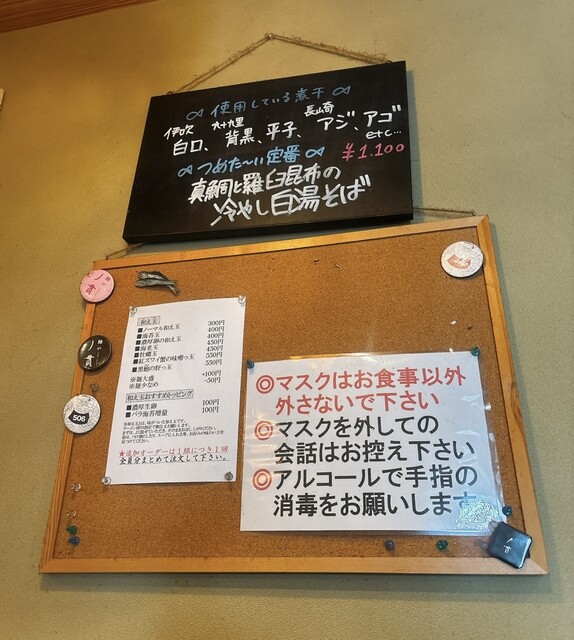 使用している煮干
伊吹 九十九里 長崎
白口、背黒、平子、アジ、アゴ
etc…
つめた〜い定番 ¥1.100
真鯛と羅臼昆布の
冷やし白湯そば
和え玉
■ノーマル和え玉 300円
■海苔玉 400円
■濃厚卵の和え玉 400円
■海老玉 450円
■牡蠣玉 450円
■紅ズワイ蟹の味噌っ玉 550円
■黒鮑の肝っ玉 550円
※麺大盛 +100円
※麺少なめ -50円
和え玉おすすめトッピング
■濃厚生卵 100円
■バラ海苔増量 100円
★追加オーダーは1組につき1回
全員分まとめて注文して下さい。
◎マスクはお食事以外
外さないで下さい
◎マスクを外しての
会話はお控え下さい
◎アルコールで手指の
消毒をお願いします
506